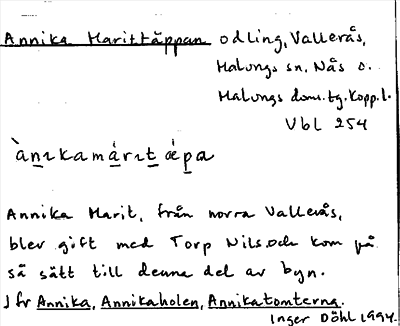 Annika Marittäppan odling, Vallerås,
Malungs sn, Nås o.
Malungs doms.tg. Kopp.l.
Vbl 254
ànikamáritǽpa
Annika Marit, från norra Vallerås,
blev gift med Torp Nils och kom på
så sätt till denna del av byn.
Jfr Annika, Annikaholen, Annikatomterna.
Inger Döhl 1994.